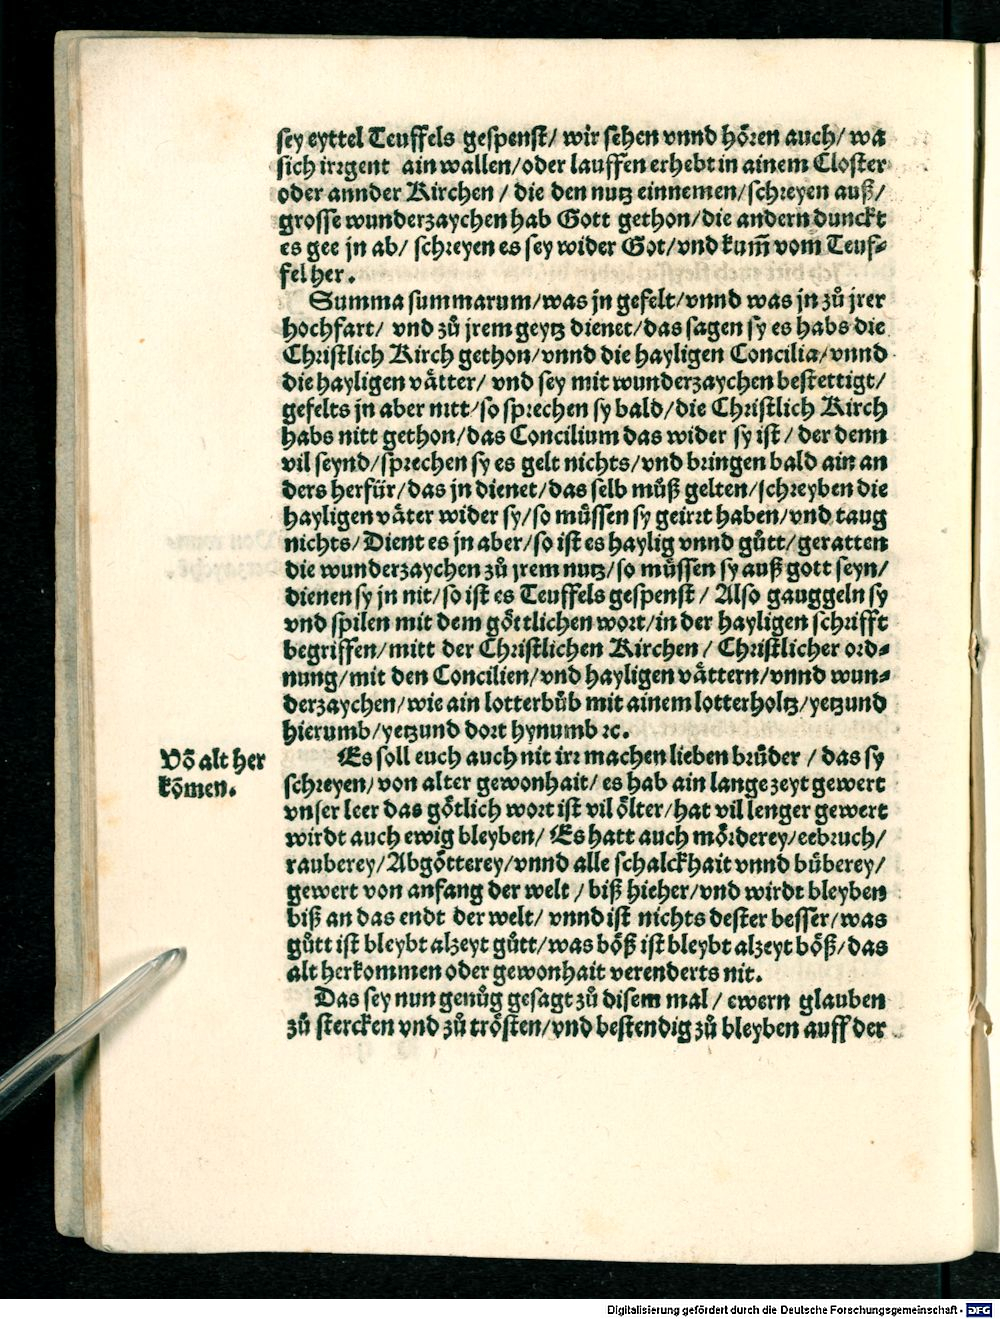 sey eyttel Teuffels gespenst/ wir sehen vnnd hören auch/ wa
sich irrgent ain wallen/oder lauffen erhebt in ainem Closter
oder annder Kirchen / die den nutz einnemen/schreyen auß/
grosse wunderzaychen hab Gott gethon/die andern dunckt
es gee jn ab/ schreyen es sey wider Got/vnd kum̃ vom Teuf⸗
fel her.
Summa summarum/was jn gefelt/vnnd was jn zů jrer
hochfart/ vnd zů jrem geytz dienet/das sagen sy es habs die
Christlich Kirch gethon/vnnd die hayligen Concilia/vnnd
die hayligen vätter/ vnd sey mit wunderzaychen bestettigt/
gefelts jn aber nitt/so sprechen sy bald/die Christlich Kirch
habs nitt gethon/das Concilium das wider sy ist/ der denn
vil seynd/sprechen sy es gelt nichts/vnd bringen bald ain an
ders herfür/das jn dienet/das selb můß gelten/schreyben die
hayligen väter wider sy/so müssen sy geirrt haben/vnd taug
nichts/ Dient es jn aber/so ist es haylig vnnd gůtt/geratten
die wunderzaychen zů jrem nutz/so müssen sy auß gott seyn/
dienen sy jn nit/so ist es Teuffels gespenst/ Also gauggeln sy
vnd spilen mit dem göttlichen wort/in der hayligen schrifft
begriffen/mitt der Christlichen Kirchen / Christlicher ord⸗
nung/mit den Concilien/vnd hayligen vättern/vnnd wun⸗
derzaychen/wie ain lotterbůb mit ainem lotterholtz/yetzund
hierumb/yetzund dort hynumb ꝛc.
Võ alt her
kõmen.
Es soll euch auch nit irr machen lieben brüder / das sy
schreyen/von alter gewonhait/ es hab ain lange zeyt gewert
vnser leer das götlich wort ist vil ölter/hat vil lenger gewert
wirdt auch ewig bleyben/ Es hatt auch mörderey/eebruch/
rauberey/Abgötterey/vnnd alle schalckhait vnnd büberey/
gewert von anfang der welt / biß hieher/vnd wirdt bleyben
biß an das endt der welt/ vnnd ist nichts dester besser/was
gůtt ist bleybt alzeyt gůtt/was böß ist bleybt alzeyt böß/das
alt herkommen oder gewonhait verenderts nit.
Das sey nun genůg gesagt zů disem mal/ ewern glauben
zů stercken vnd zů trösten/vnd bestendig zů bleyben auff der
Digitalisierung gefördert durch die Deutsche Forschungsgemeinschaft - DFG